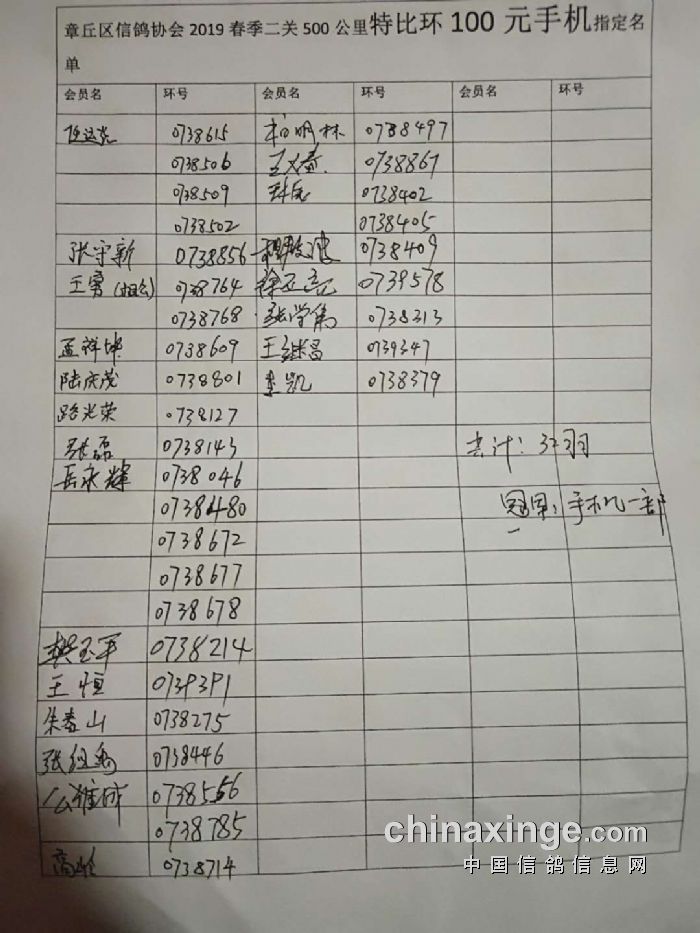 章丘区信鸽协会2019春季二关500公里特比环100元手机指定名
单
会员名 环号 会员名 环号 会员名 环号
0738615 柏明林 0738497
0738506 0738867
0738509 0738402
0738502 0738405
张守新 0738856 0738409
王勇 0738764 0739578
0738768 0738313
孟祥坤 0738609 王继昌 0739347
陆庆茂 0738801 李凯 0738379
路光荣 0738127
张磊 0738143 共计：32羽
岳永辉 0738046
0738480 冠军：手机一部
0738672
0738677
0738678
樊玉平 0738214
王恒 0739391
朱春山 0738275
0738446
0738566
0738785
0738714
chinaxinge.com
中国信鸽信息网